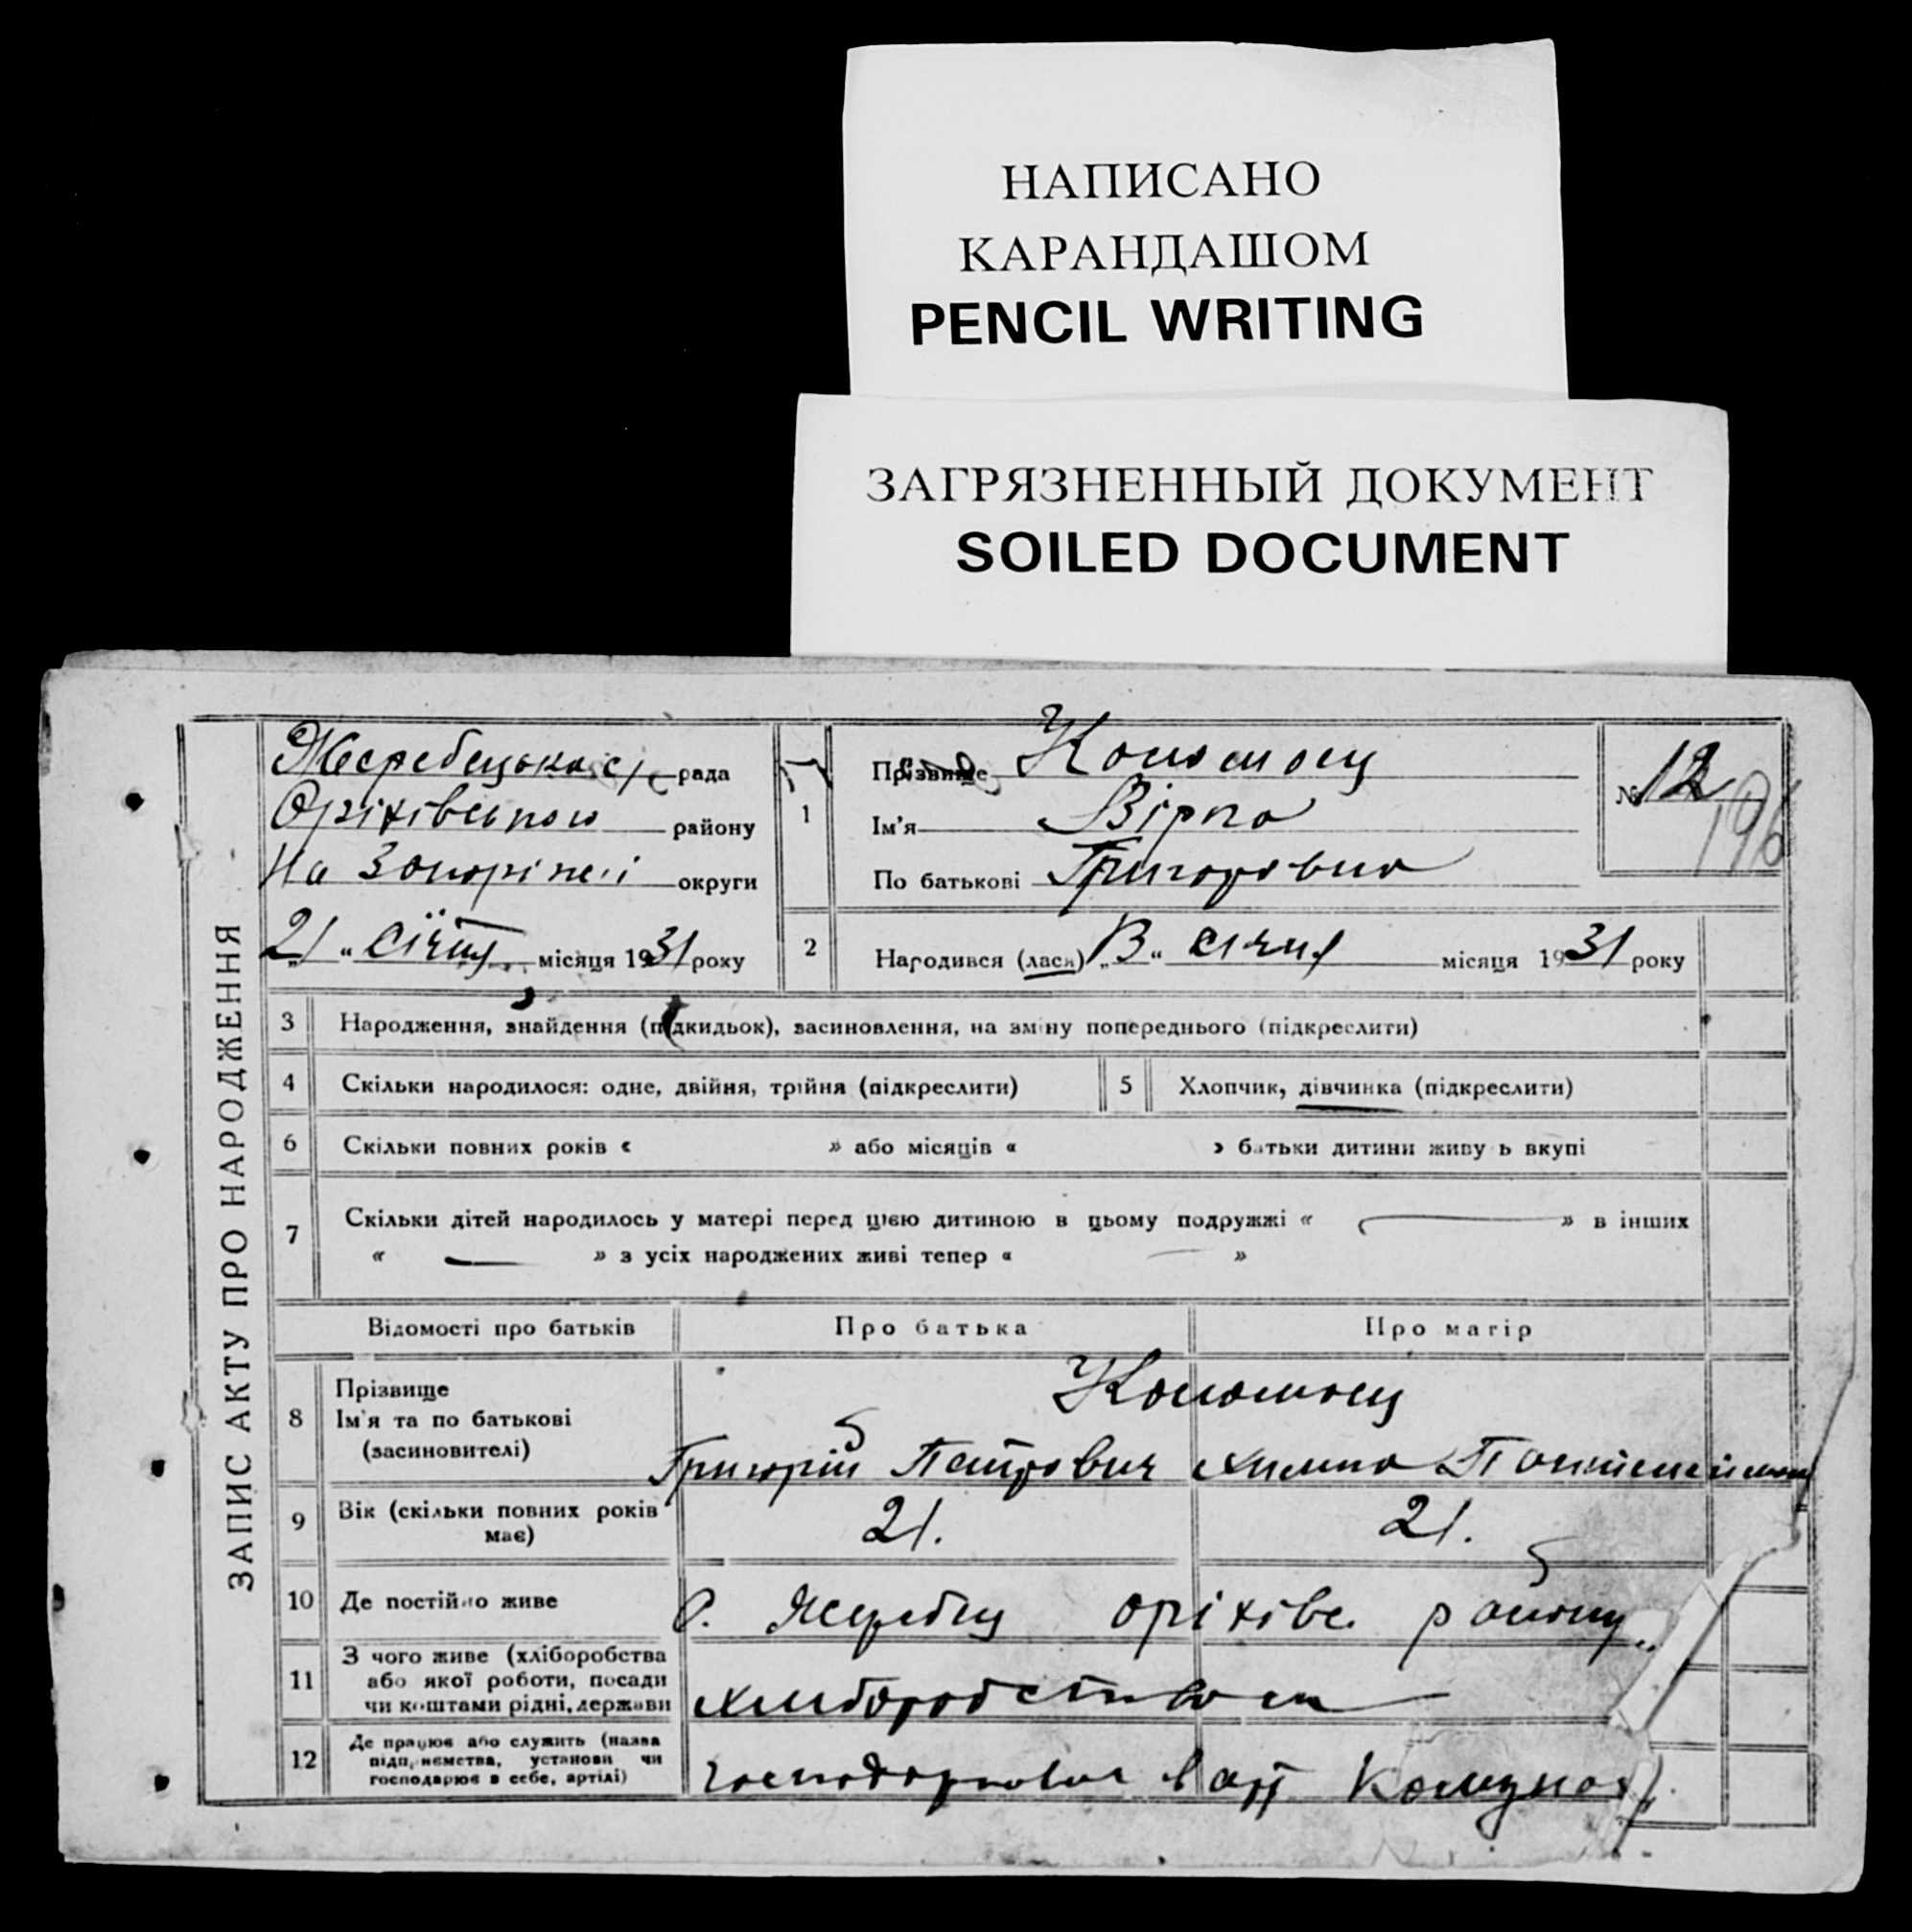 НАПИСАНО
КАРАНДАШОМ
PENCIL WRITING
ЗАГРЯЗНЕННЫЙ ДОКУМЕНТ
SOILED DOCUMENT
ЗАПИС АКТУ ПРО НАРОДЖЕННЯ
Жеребецька с/ рада
Оріхівського району
На Запоріжжі округи
21 " січня місяця 1931 року
1 Прізвище
Ім'я Віра
По батькові Григоровна
№ 12
196
2 Народився (лася) „ " січня місяця 1931 року
3 Народження, знайдення (підкидьок), засиновлення, на зміну попереднього (підкреслити)
4 Скільки народилося: одне, двійня, трійня (підкреслити) 5 Хлопчик, дівчинка (підкреслити)
6 Скільки повних років « » або місяців « » батьки дитини живуть вкупі
7 Скільки дітей народилось у матері перед цією дитиною в цьому подружжі « — » в інших
« — » з усіх народжених живі тепер « — »
Відомості про батьків Про батька Про матір
8 Прізвище
Ім'я та по батькові
(засиновителі)
Григорій Петрович
9 Вік (скільки повних років
має)
21. 21.
10 Де постійно живе
С. Жеребец оріхівс. району
11 З чого живе (хліборобства
або якої роботи, посади
чи коштами рідні, держави
хліборобством
12 Де працює або служить (назва
підприємства, установи чи
господарює в себе, артілі)